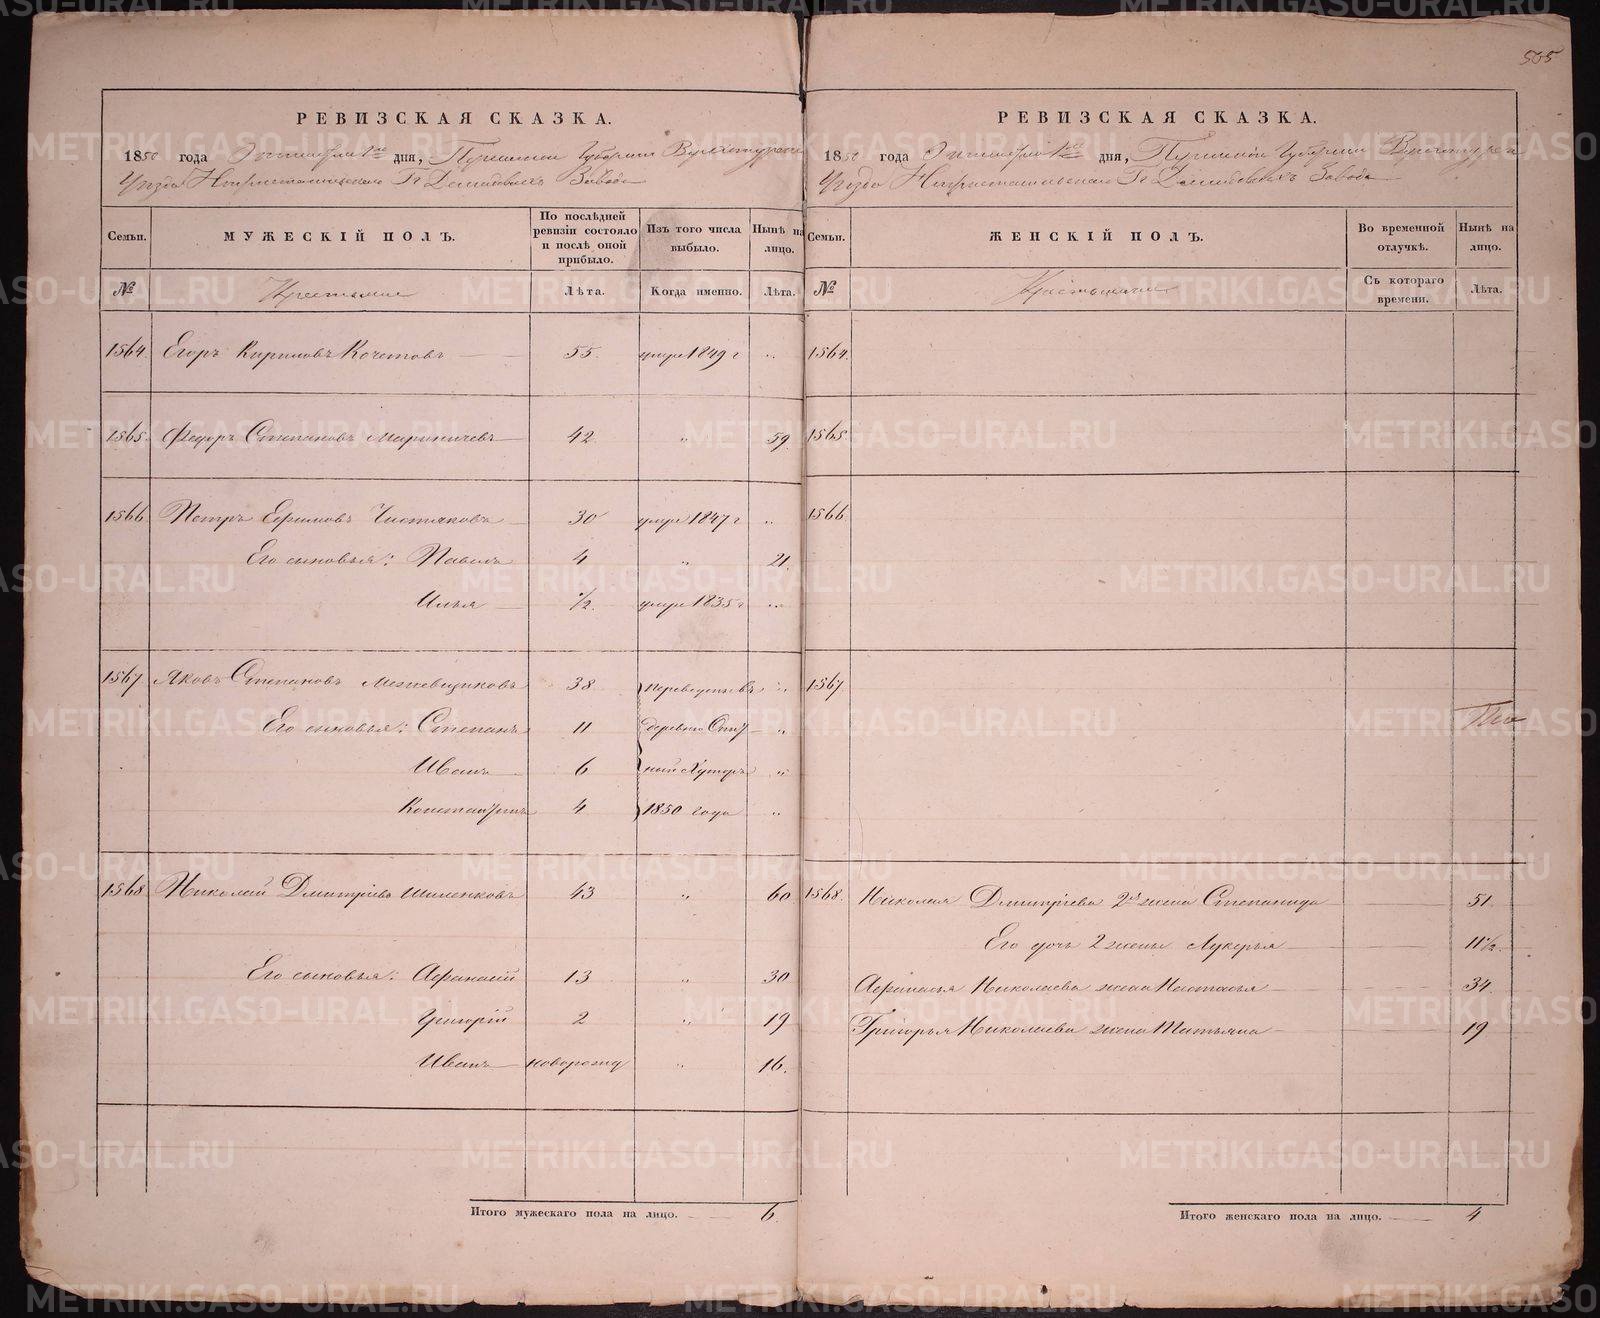 565
РЕВИЗСКАЯ СКАЗКА.
1850 года дня, Пермской Губернии Верхотурскаго
Уѣзда Гг Демидовыхъ Завода
Семьи. МУЖЕСКІЙ ПОЛЪ. По послѣдней ревизіи состояло и послѣ оной прибыло. Изъ того числа выбыло. Нынѣ на лицо.
№ Крестьяне Лѣта. Когда именно. Лѣта.
1564. Егоръ Кириловъ Кочетовъ 55. умре 1849 г „
1565. Федоръ Степановъ 42. „ 59.
1566. Петръ Ефимовъ Чистяковъ 30 умре 1847 г „
Его сыновья: Павелъ 4 „ 21.
Илья ½. умре 1835 г „
1567. Яковъ Степановъ Межевщиковъ 38 переведены въ „
Его сыновья: Степанъ 11 деревню „
Иванъ 6 Хуторъ „
Константинъ 4 1850 года „
1568. Николай Дмитріевъ Шиленковъ 43 „ 60
Его сыновья: Афанасій 13 „ 30
Григорій 2 „ 19
Иванъ новорожд „ 16.
Итого мужескаго пола на лицо. 6.
РЕВИЗСКАЯ СКАЗКА.
1850 года дня, Пермской Губерніи
Уѣзда Гг Демидовыхъ Завода
Семьи. ЖЕНСКІЙ ПОЛЪ. Во временной отлучкѣ. Нынѣ на лицо.
№ Съ котораго времени. Лѣта.
1564.
1565.
1566.
1567.
1568. Николая Дмитріева 2я жена Степанида 51.
Его дочь 2 жены Лукерья 11½.
Афанасья Николаева жена Настасья 34.
Григорья Николаева жена Татьяна 19
Итого женскаго пола на лицо. 4
METRIKI.GASO-URAL.RU